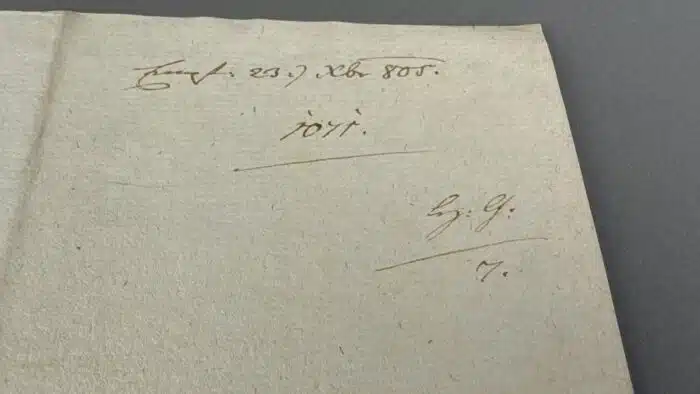 Empf: 23.) Xbr 805.
1071.
7.